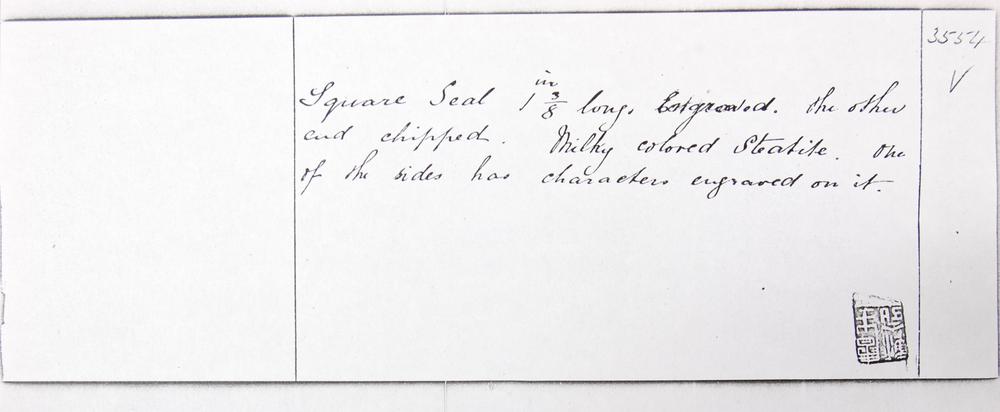 3554
V
Square Seal 1 3/8 in long. Engraved. The other
end chipped. Milky colored Steatite. One
of the sides has characters engraved on it.